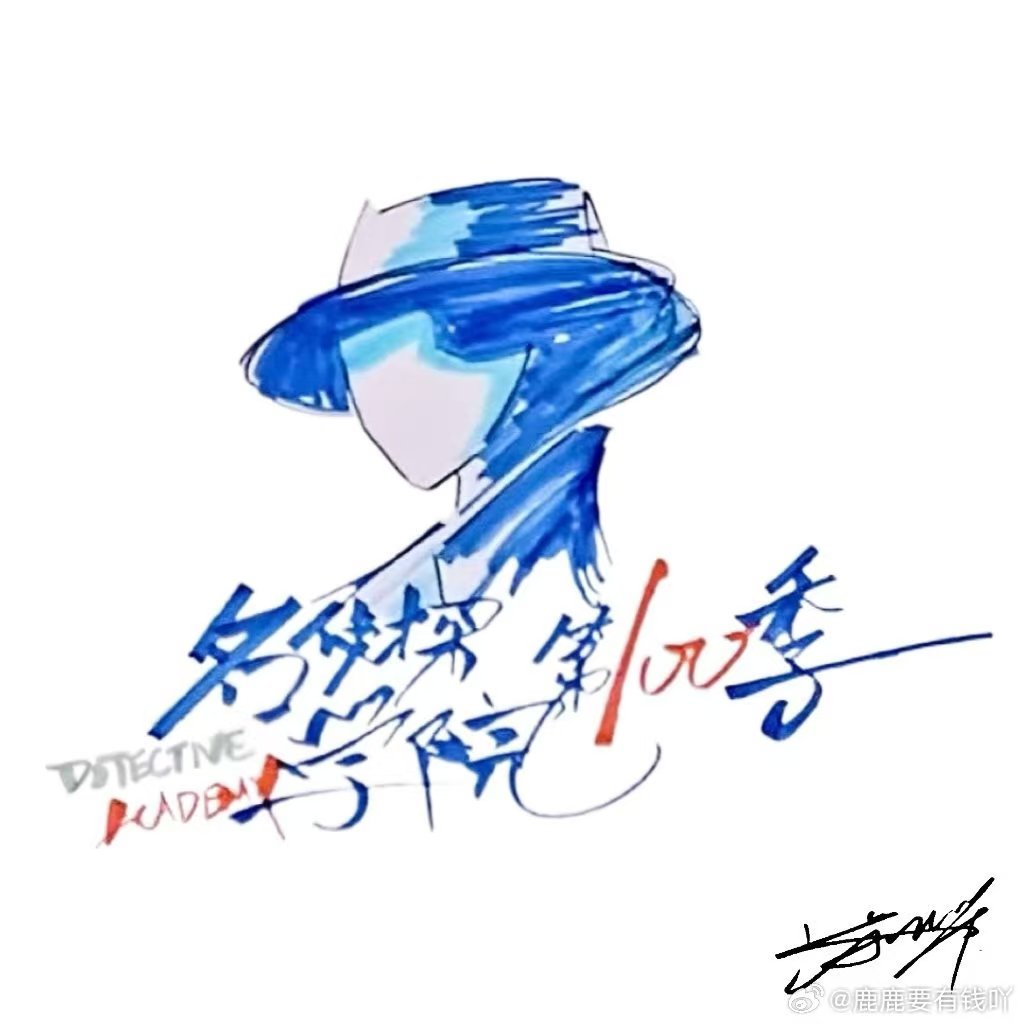 名侦探
第100季
学院
DETECTIVE
ACADEMY
@鹿鹿要有钱吖